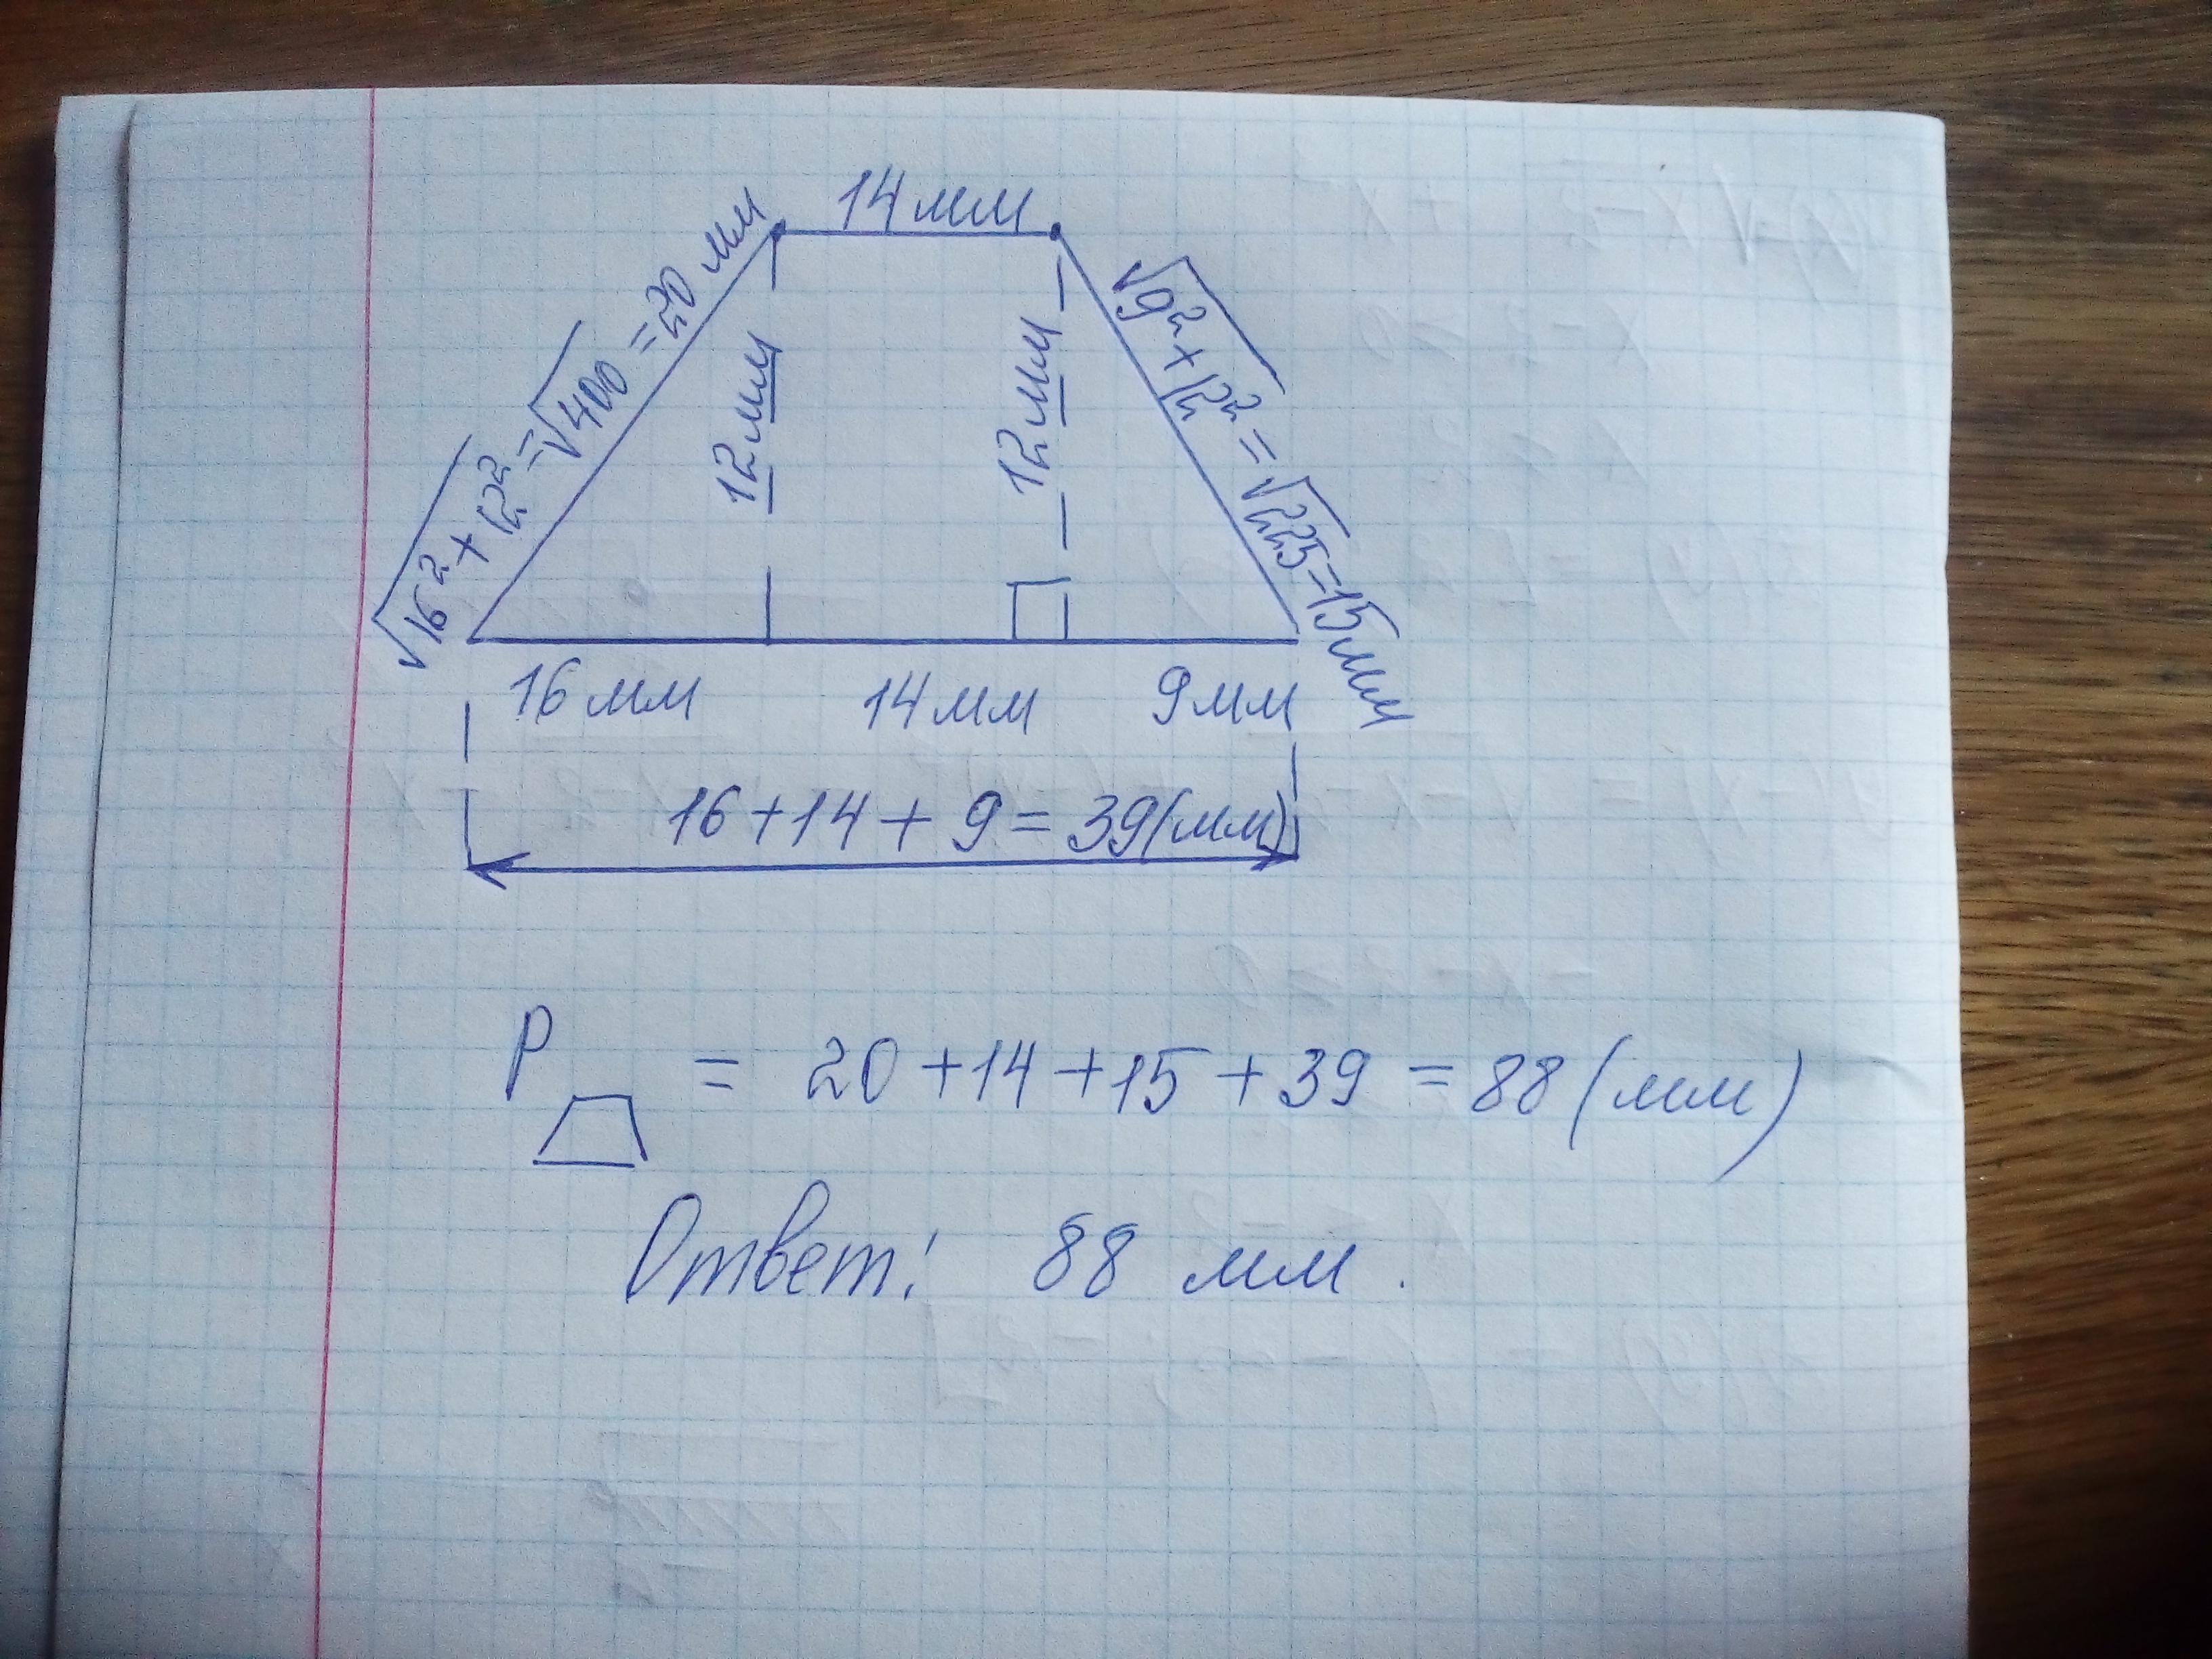 14 мм
√16² + 12² = √400 = 20 мм
12 мм
12 мм
√9² + 12² = √225 = 15 мм
16 мм 14 мм 9 мм
16 + 14 + 9 = 39 (мм)
P = 20 + 14 + 15 + 39 = 88 (мм)
Ответ: 88 мм.